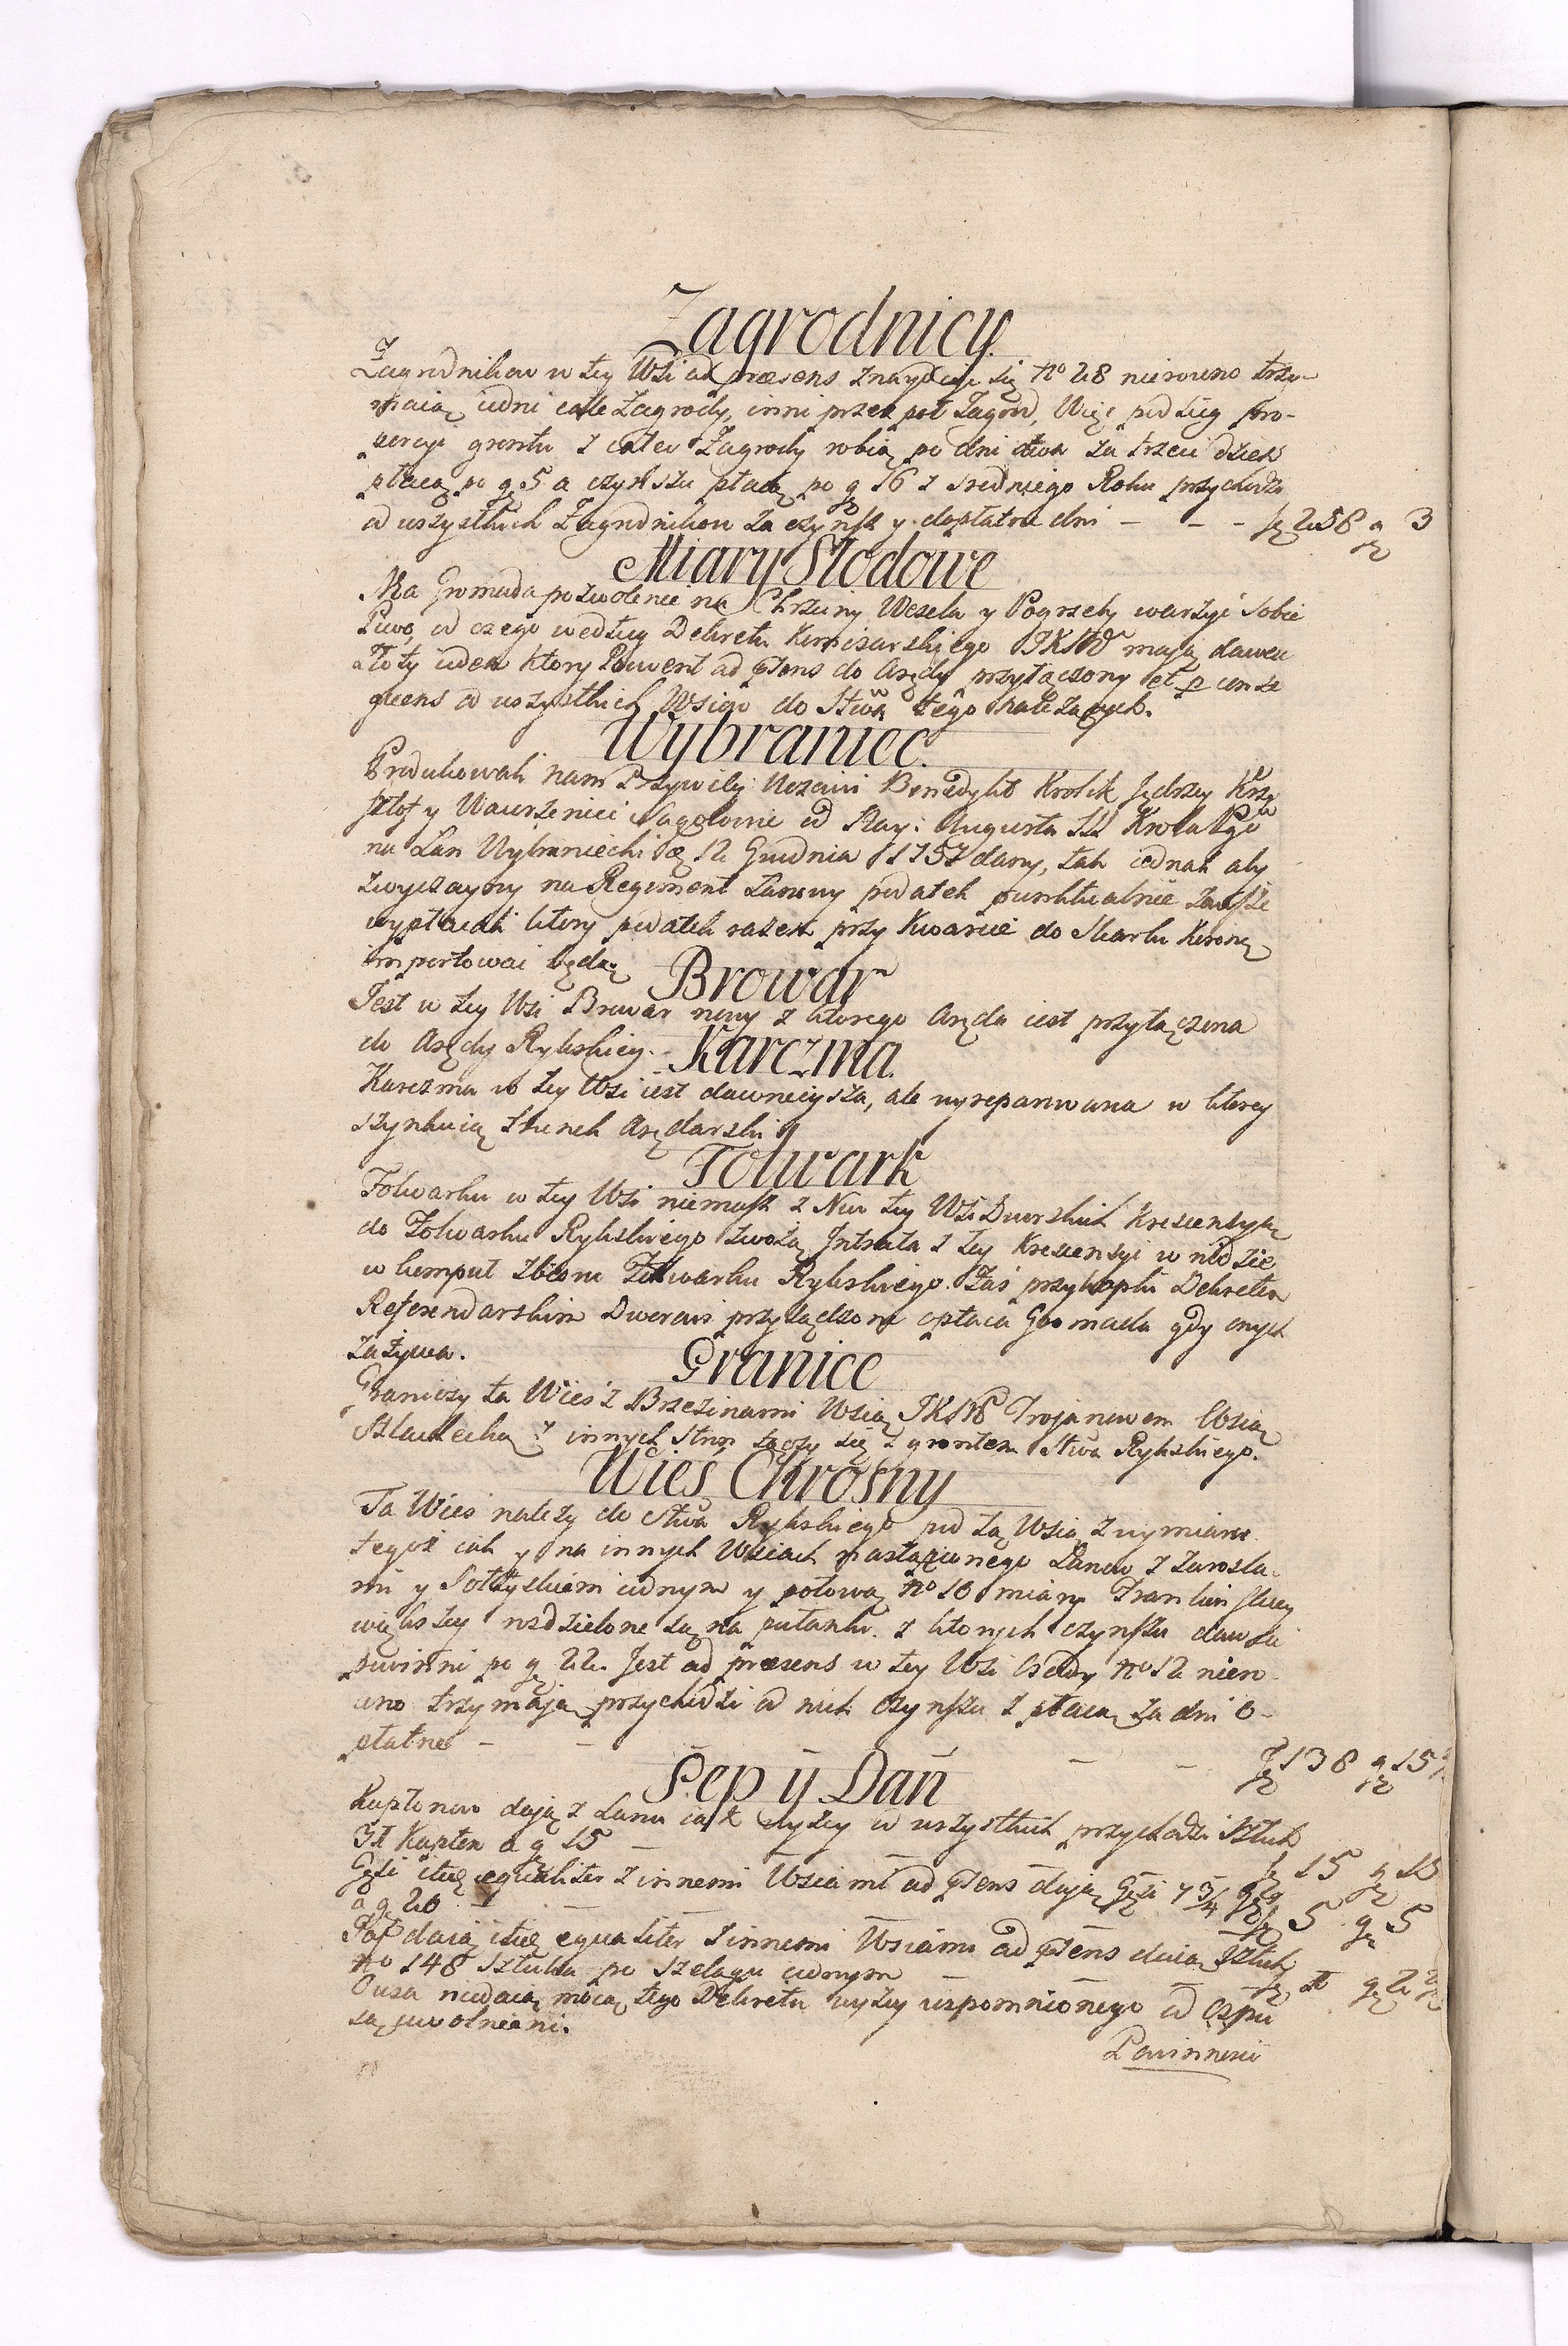 Zagrodnicy.
Zagrodnikow w tey Wsi ad præsens znayduje się No 28 nierowno trzy-
maią iedni całe Zagrody, inni przez poł Zagrod, Więc podług pro-
porcyi gruntu z całey Zagrody robią po dni dwa za trzeci dzień
płacą po gr 5 a czynszu płacą po gr 16 z sredniego Roku przychodzi
od wszystkich Zagrodnikow za czynsz y dopłatne dni - - - fl 258 gr 3
Miary Słodowe
Ma Gromada pozwolenie na Chrzciny Wesela y Pogrzeby warzyć sobie
Piwo, od czego według Dekretu Komisarskiego JKMci mają dawać
złoty ieden ktory Prowent ad præsens do Arędy przyłączony et per conse
quens od wszystkich Wsiow do Stwa tego należących.
Wybraniec.
Produkowali nam Przywiley Uczciwi Benedykt Krolik Jędrzey Krzy
sztof y Wawrzeniec od Nay: Augusta III Krola Pgo
na Łan Wybraniecki d 12 Grudnia 1757 dany, tak iednak aby
zwyczayny na Regiment Łanowy podatek punktualnie zawsze
wypłacali ktory podatek razem przy Kwarcie do Skarbu Koronę
importować będą.
Browar
Jest w tey Wsi Browar nowy z ktorego Aręda iest przyłączona
do Arędy Rykskiey.
Karczma.
Karczma w tey Wsi iest dawnieysza, ale wyreparowana w ktorey
szynkuią trunek Arędarski
Folwark
Folwarku w tey Wsi niemasz z Niw tey Wsi Dworskich Krescencyą
do Folwarku Rykskiego zwożą Intrata z tey Krescencyi wniydzie
w komput zbioru Folwarku Rykskiego. Zaś przykopki Dekretem
Referendarskim Dworowi przysądzone opłaca Gromada gdy onych
zażywa.
Granice
Graniczy ta Wieś z Brzezinami Wsią JKMci Trojanowem Wsią
Szlachecką z innych stron łączy się z gruntem Stwa Rykskiego.
Wieś Ohrosny
Ta Wieś należy do Stwa Rykskiego pod tą Wsią z wymiaru
tegoż iak y na innych Wsiach nastąpionego Łanow z zarosla-
mi y Sołtyskiem iednym y połową No 10 miary Frankonskiey
większey rozdzielone są na pułanki z ktorych czynszu dawać
powinni po gr 22. Jest ad præsens w tey Wsi Osady No 12 niero-
wno trzymają przychodzi od nich czynszu z płacą za dni o-
płatne - - - - fl 138 gr 15
Sep y Dań
Kapłonow dają z Łanu iak wyżey od wszystkich przychodzi Sztuk
31 Kapłon a gr 15 - - - fl 15 gr 15
Gęsi itidę equaliter z innemi Wsiami ad præsens dają Gęsi 7 3/4
a gr 20 - - - fl 5 gr 5
Jaj daią itidę equaliter z innemi Wsiami ad præsens daią Sztuk
No 148 Sztuka po szelągu iednym - - fl 1 gr 2
Owsa niedaią mocą tego Dekretu wyżey wspomnionego od Ospu
są uwolnieni.
Powinnosci